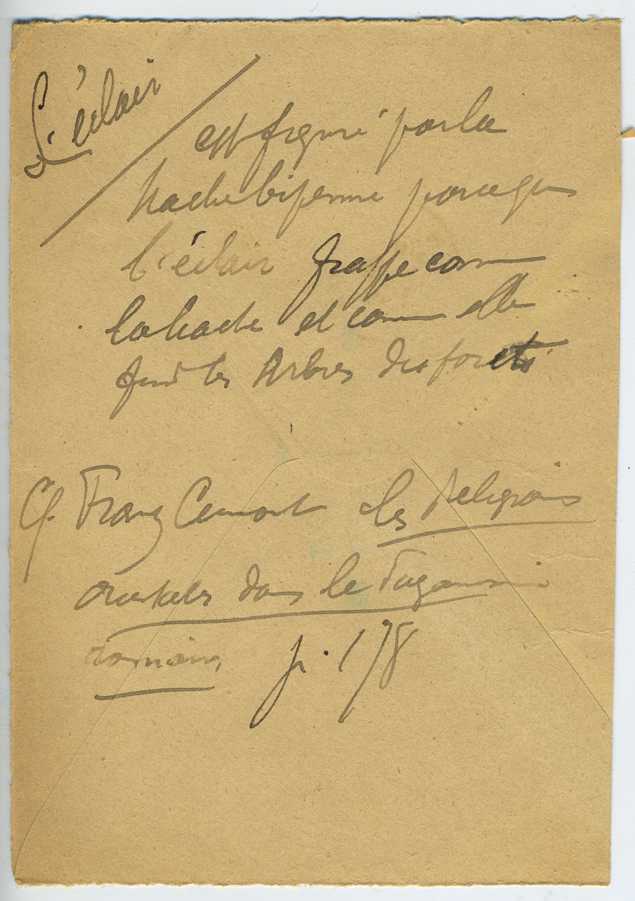 L'éclair
est figuré par la
hache bipenne parce que
l'éclair frappe comme
la hache et comme elle
fend les Arbres des forêts
Cf. Franz Cumont Les Religions
orientales dans le Paganisme
romain, p. 178